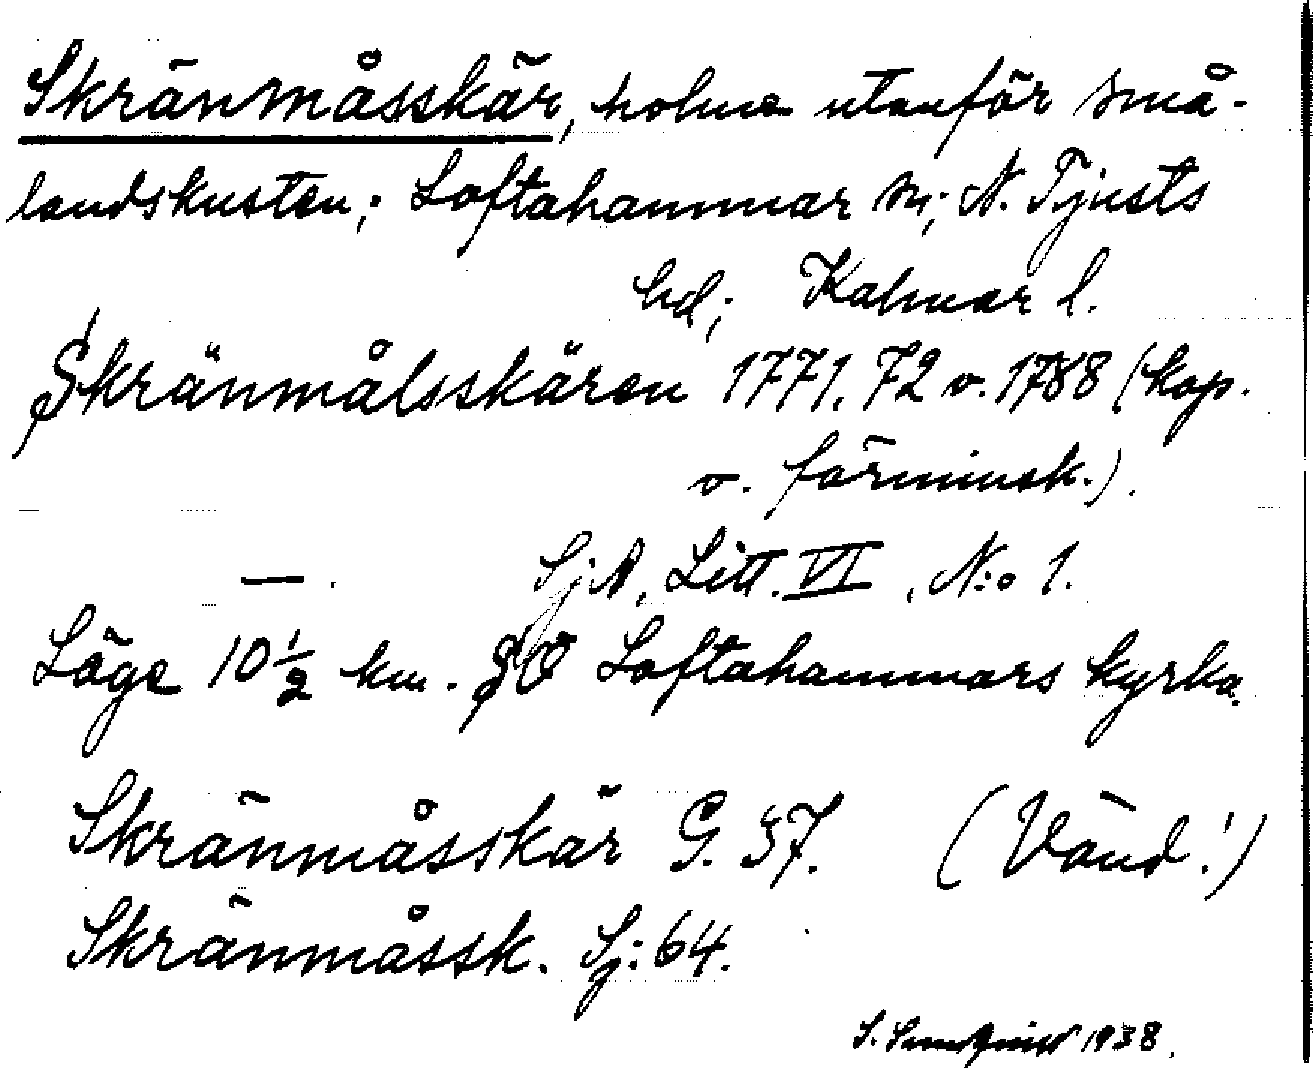 Skränmåsskär, holme utanför små-
landskusten; Loftahammar sn; N. Tjusts
hd; Kalmar l.
Skränmålsskären 1771. 72 o. 1788 (kop.
o. förminsk.).
— . SjA, Litt. VI, N:o 1.
Läge 10 1/2 km. SO Loftahammars kyrka.
Skränmåsskär G. 37. (Vänd!)
Skränmåssk. Sj: 64.
S. Sundqvist 1938.